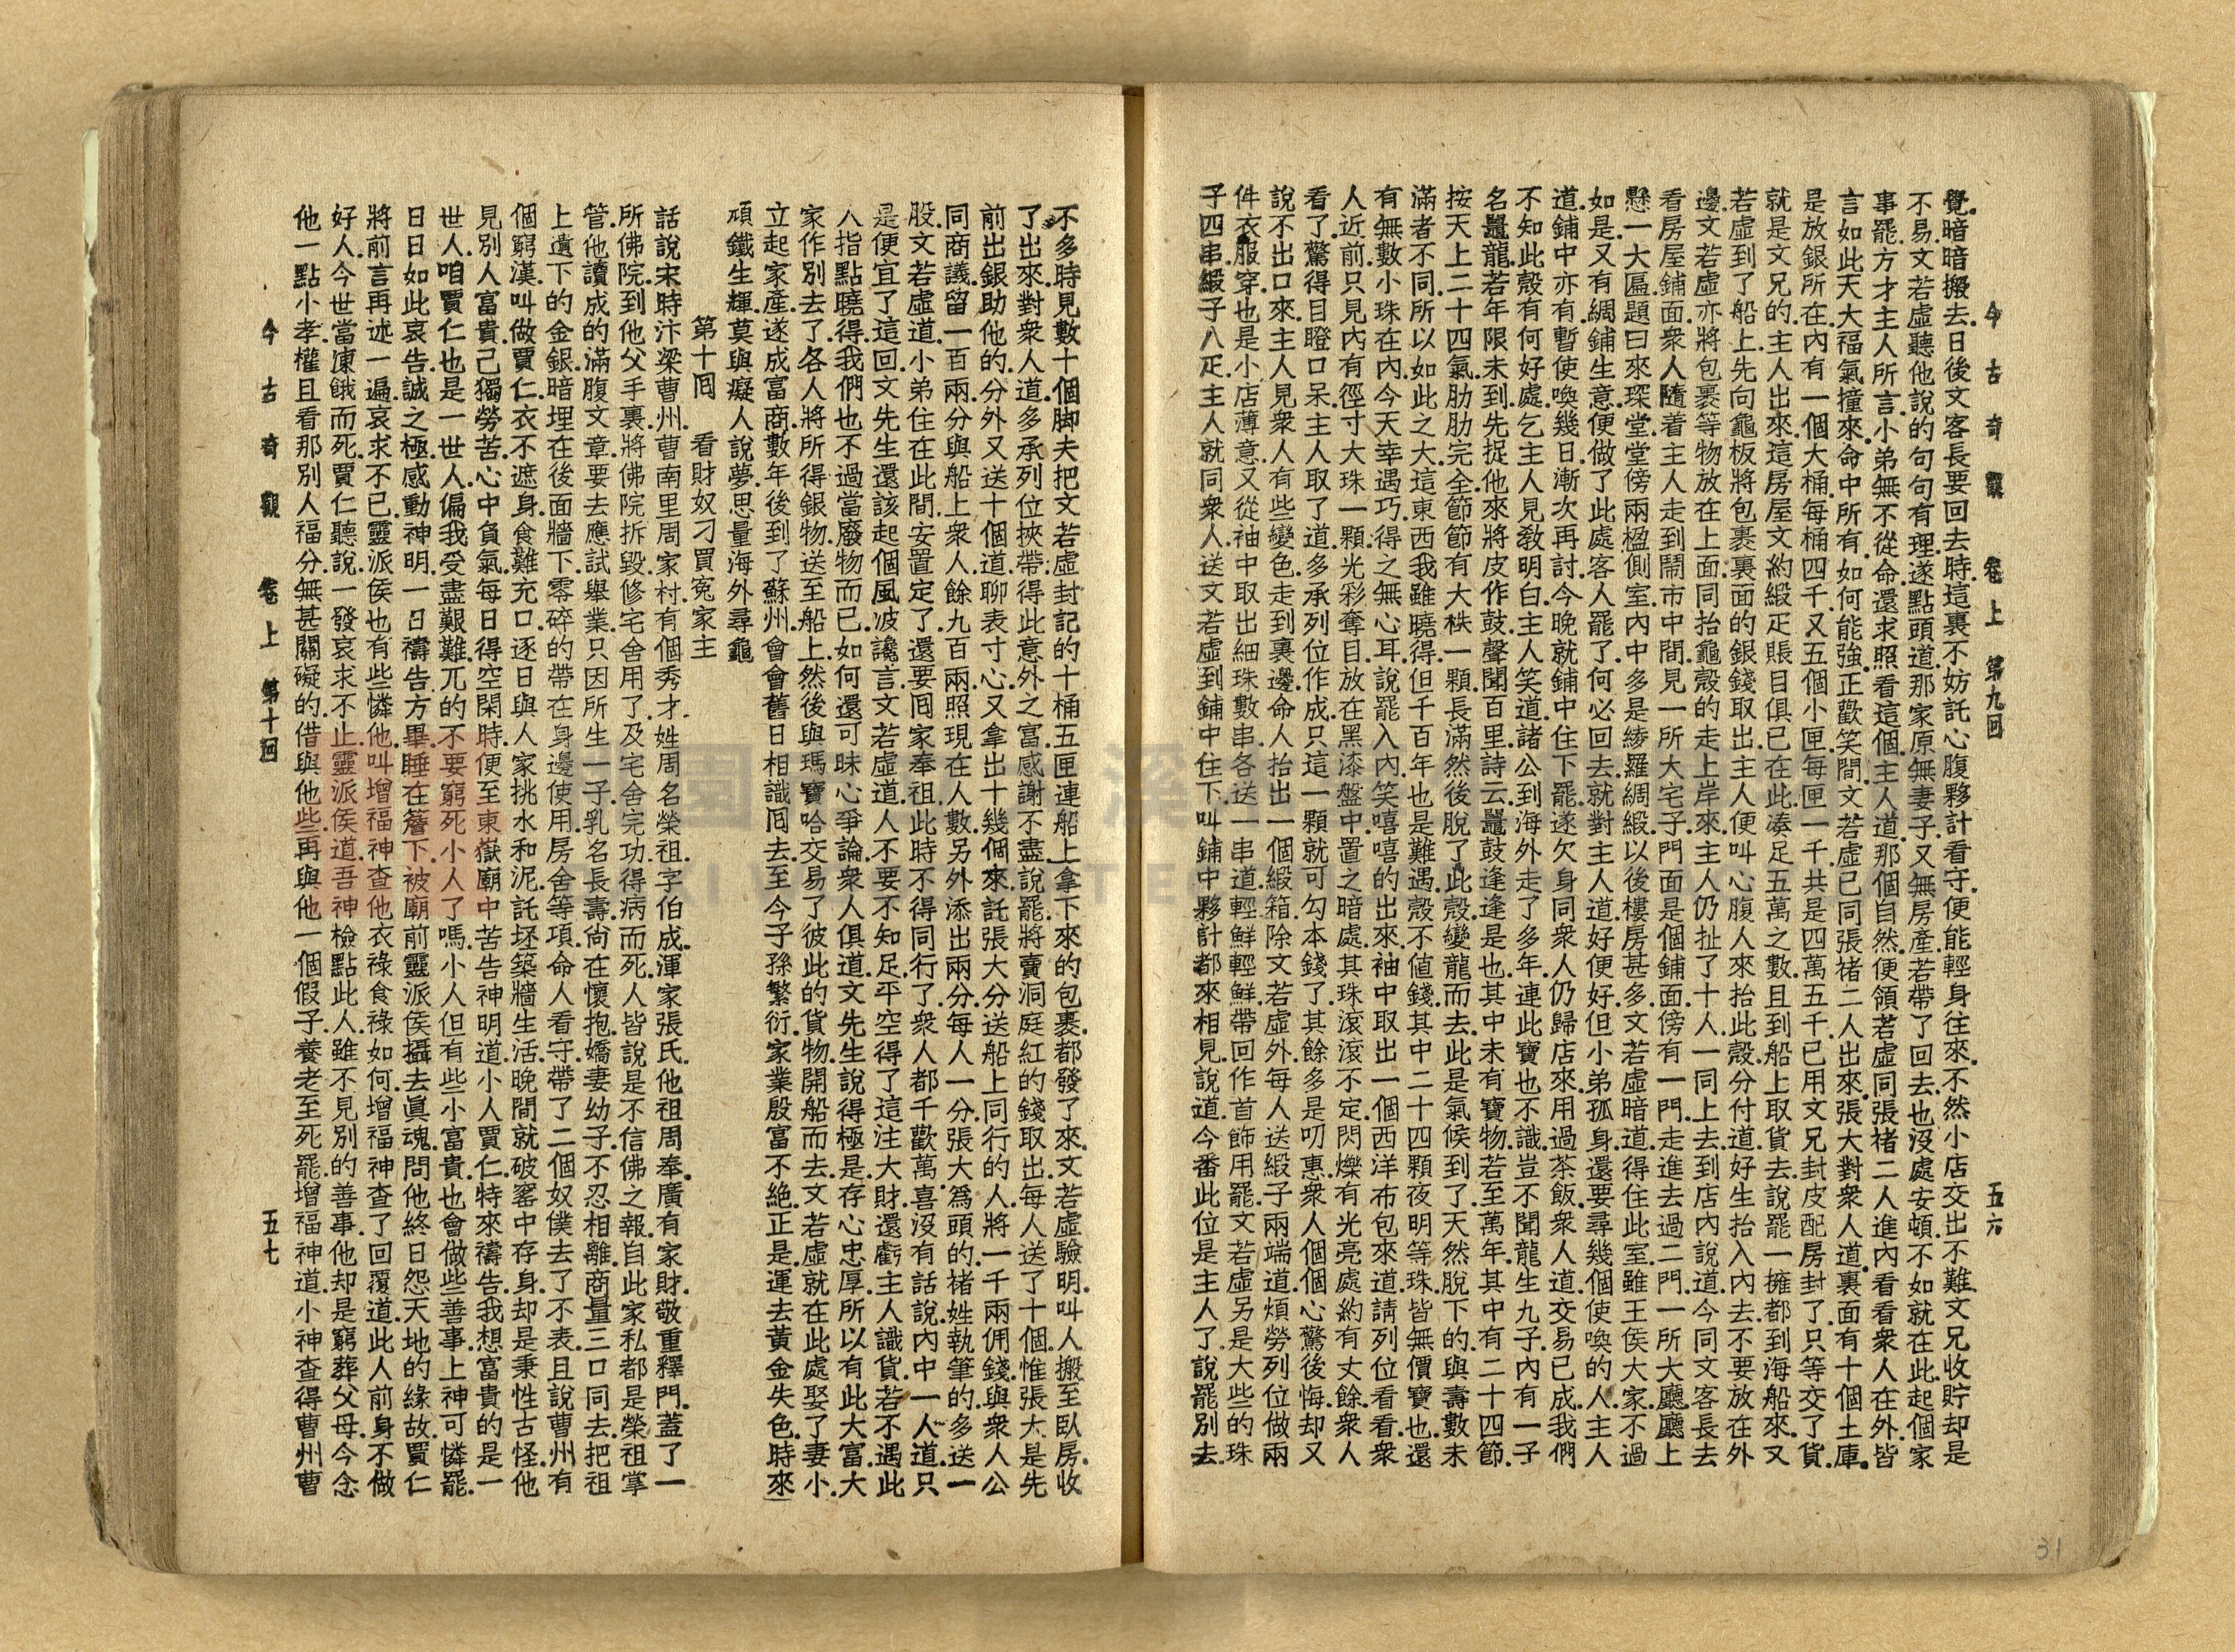 今古奇觀 卷上 第九回 五六
覺.暗暗搬去.日後文客長要回去時.這裏不妨託心腹夥計看守.便能輕身往來.不然小店交出不難.文兄收貯却是
不易.文若虛聽他說的句句有理.遂點頭道.那家原無妻子.又無房產.若帶了回去.也沒處安頓.不如就在此.起個家
事罷.方才主人所言.小弟無不從命.還求照看這個.主人道.那個自然.便領若虛同張褚二人進內看看.衆人在外.皆
言如此天大福氣.撞來命中所有.如何能強.正歡笑間.文若虛已同張褚二人出來.張大對衆人道.裏面有十個土庫.
是放銀所在.內有一個大桶.每桶四千.又五個小匣.每匣一千.共是四萬五千.已用文兄封皮配房封了.只等交了貨.
就是文兄的.主人出來.這房屋文約緞疋賬目俱已在此.湊足五萬之數.且到船上取貨去.說罷一擁都到海船來.又
若虛到了船上.先向龜板將包裹裏面的銀錢取出.主人便叫心腹人來抬此殼.分付道.好生抬入內去.不要放在外
邊.文若虛亦將包裹等物放在上面.同抬龜殼的走上岸來.主人仍扯了十人一同上去.到店內說道.今同文客長去
看房屋鋪面.衆人隨着主人走到鬧市中間.見一所大宅子.門面是個鋪面.傍有一門.走進去過二門.一所大廳.廳上
懸一大匾.題曰來琛堂.堂傍兩楹側室.內中多是綾羅綢緞.以後樓房甚多.文若虛暗道.得住此室.雖王侯大家不過
如是.又有綢鋪生意.便做了此處客人罷了.何必回去.就對主人道.好便好.但小弟孤身.還要尋幾個使喚的人.主人
道.鋪中亦有暫使喚幾日.漸次再討.今晚就鋪中住下罷.遂欠身同衆人仍歸店來.用過茶飯.衆人道.交易已成.我們
不知此殼有何好處.乞主人見教明白.主人笑道.諸公到海外走了多年.連此寶也不識.豈不聞龍生九子.內有一子
名鼉龍.若年限未到.先捉他來將皮作鼓.聲聞百里.詩云.鼉鼓逢逢是也.其中未有寶物.若至萬年.其中有二十四節.
按天上二十四氣.肋肋完全.節節有大株一顆.長滿然後脫了此殼.變龍而去.此是氣候到了.天然脫下的.與壽數未
滿者不同.所以如此之大.這東西我雖曉得.但千百年也是難遇.殼不值錢.其中二十四顆夜明等珠.皆無價寶也.還
有無數小珠在內.今天幸遇巧.得之無心耳.說罷入內.笑嘻嘻的出來.袖中取出一個西洋布包來道.請列位看看.衆
人近前.只見內有徑寸大珠一顆.光彩奪目.放在黑漆盤中置之暗處.其珠滾滾不定.閃爍有光亮處約有丈餘.衆人
看了.驚得目瞪口呆.主人取了道.多承列位作成.只這一顆就可勾本錢了.其餘多是叨惠.衆人個個心驚後悔.却又
說不出口來.主人見衆人有些變色.走到裏邊.命人抬出一個緞箱.除文若虛外.每人送緞子兩端.道煩勞列位做兩
件衣服穿.也是小店薄意.又從袖中取出細珠數串.各送一串道.輕鮮輕鮮.帶回作首飾用罷.文若虛另是大些的珠
子四串.緞子八疋.主人就同衆人.送文若虛到鋪中住下.叫鋪中夥計都來相見.說道.今番此位是主人了.說罷別去.
不多時見數十個脚夫把文若虛封記的十桶五匣連船上拿下來的包裹.都發了來.文若虛驗明.叫人搬至臥房.收
了出來.對衆人道.多承列位挾帶.得此意外之富.感謝不盡.說罷.將賣洞庭紅的錢取出.每人送了十個.惟張大是先
前出銀助他的.分外又送十個.道聊表寸心.又拿出十幾個來.託張大分送船上同行的人.將一千兩佣錢與衆人公
同商議.留一百兩分與船上衆人.餘九百兩.照現在人數.另外添出兩分.每人一分.張大爲頭的.褚姓執筆的.多送一
股.文若虛道.小弟住在此間.安置定了.還要囘家奉祖.此時不得同行了.衆人都千歡萬喜沒有話說.內中一人道.只
是便宜了這回.文先生還該起個風波讒言.文若虛道.人不要不知足.平空得了這注大財.還虧主人識貨.若不遇此
人指點曉得.我們也不過當廢物而已.如何還可昧心爭論.衆人俱道.文先生說得極是.存心忠厚.所以有此大富.大
家作別去了.各人將所得銀物.送至船上.然後與瑪寶哈交易了.彼此的貨物.開船而去.文若虛就在此處娶了妻小.
立起家產.遂成富商.數年後到了蘇州.會會舊日相識.囘去.至今子孫繁衍.家業殷富不絶.正是.運去黃金失色.時來
頑鐵生輝.莫與癡人說夢.思量海外尋龜
第十囘 看財奴刁買寃家主
話說宋時汴梁曹州曹南里周家村.有個秀才.姓周名榮祖.字伯成.渾家張氏.他祖周奉.廣有家財.敬重釋門.蓋了一
所佛院.到他父手裏.將佛院拆毀修宅舍用了.及宅舍完功得病而死.人皆說是不信佛之報.自此家私都是榮祖掌
管.他讀成的滿腹文章.要去應試舉業.只因所生一子.乳名長壽.尚在懷抱.嬌妻幼子.不忍相離.商量三口同去.把祖
上遺下的金銀.暗埋在後面牆下.零碎的帶在身邊使用.房舍等項.命人看守.帶了二個奴僕去了不表.且說曹州有
個窮漢.叫做賈仁.衣不遮身.食難充口.逐日與人家挑水和泥.託坯築牆生活.晚間就破窰中存身.却是秉性古怪.他
見別人富貴.己獨勞苦.心中負氣.每日得空閑時.便至東嶽廟中苦告神明道.小人賈仁.特來禱告.我想富貴的是一
世人.咱賈仁也是一世人.偏我受盡艱難.兀的不要窮死小人了嗎.小人但有些小富貴.也會做些善事.上神可憐罷.
日日如此哀告.誠之極.感動神明.一日禱告方畢.睡在簷下.被廟前靈派侯攝去眞魂.問他終日怨天地的緣故.賈仁
將前言再述一遍.哀求不已.靈派侯也有些憐他.叫增福神查他衣祿食祿如何.增福神查了回覆道.此人前身不做
好人.今世當凍餓而死.賈仁聽說.一發哀求不止.靈派侯道.吾神檢點此人.雖不見別的善事.他却是窮葬父母.今念
他一點小孝.權且看那別人福分.無甚關礙的.借與他些.再與他一個假子.養老至死罷.增福神道.小神查得曹州曹
今古奇觀 卷上 第十囘 五七
31